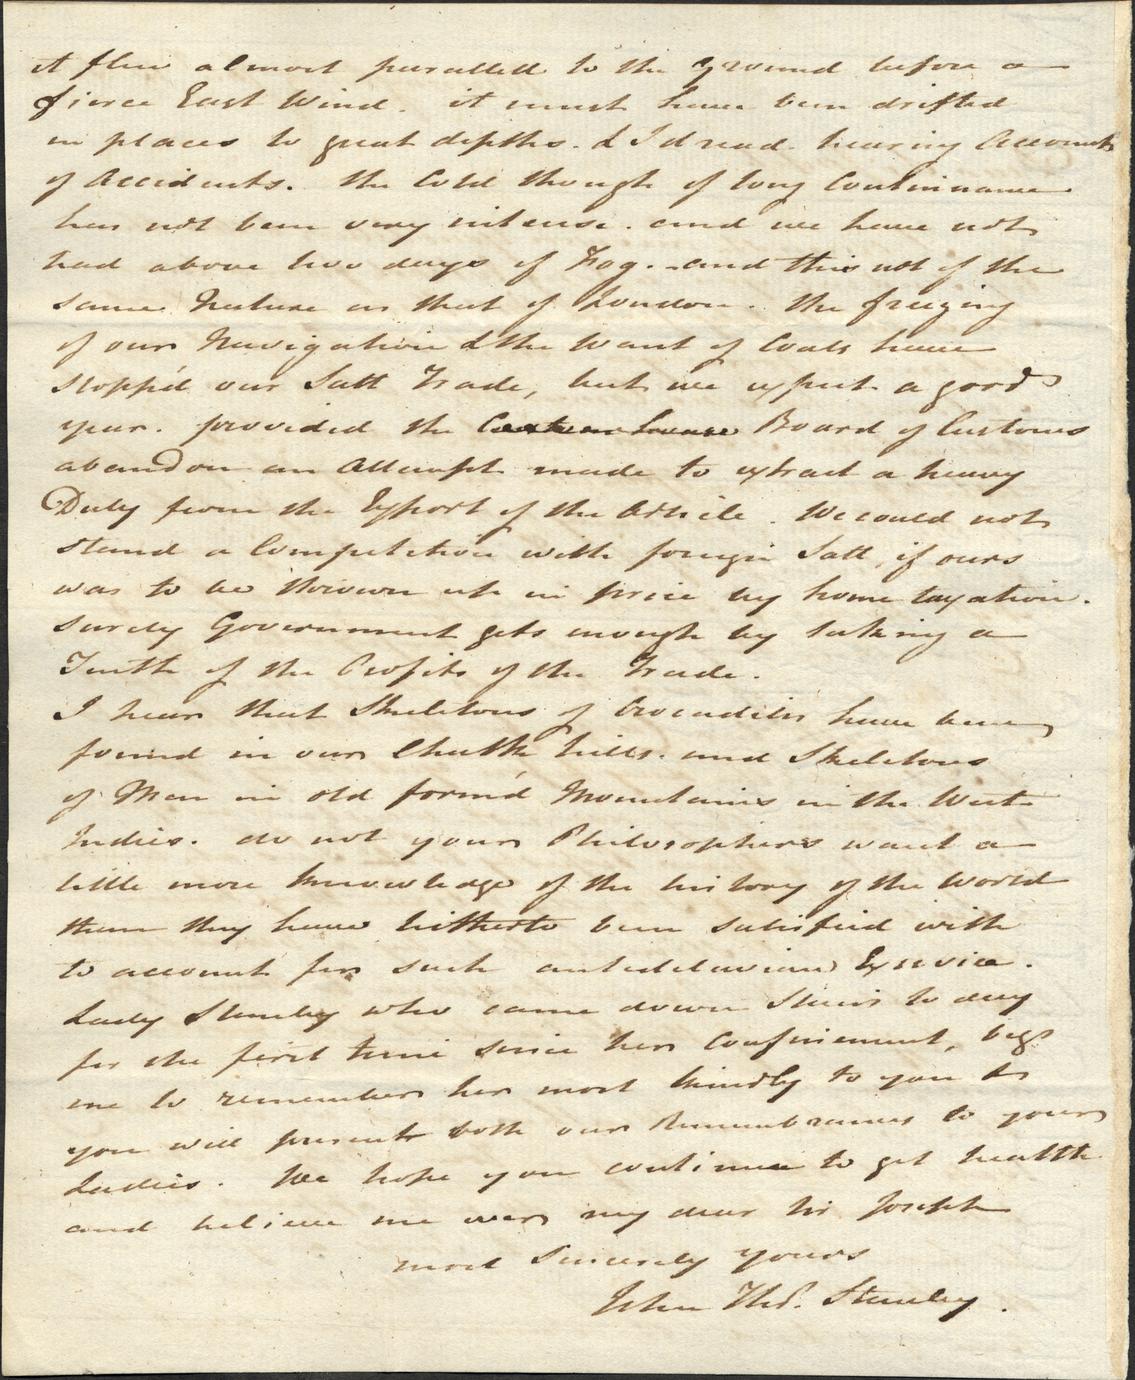 it flew almost parallell to the ground before a
fierce East Wind. it must have been drifted
in places to great depths. & I dread hearing Accounts
of Accidents. the Cold though of long Continuance
has not been very intense. and we have not
had above two days of Fog. - and this not of the
same Nature as that of London. the freezing
of our Navigation & the Want of Coals have
stopp'd our Salt Trade, but we expect a good
year. provided the Board of Customs
abandon an Attempt made to extract a heavy
Duty from the Export of the Article. We could not
stand a Competition with foreign Salt, if ours
was to be thrown up in price by home taxation.
surely Government gets enough by taking a
Tenth of the Profits of the Trade.
I hear that Skeletons of Crocodiles have been
found in our Chalk hills. and Skeletons
of Men in old form'd Mountains in the West
Indies. do not your Philosophers want a
little more knowledge of the history of the World
than they have hitherto been satisfied with
to account for such antedeluvian
Lady Stanley who came down Stairs to day
for the first time since her Confinement, begs
me to remember her most kindly to you &
you will present both our Remembrances to your
Ladies. We hope you continue to get health
and believe me ever my dear Sir Joseph
most Sincerely yours
John Thos. Stanley.